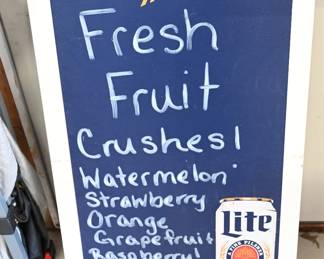 Fresh
Fruit
Crushes!
Watermelon
Strawberry
Orange
Grapefruit
Raspberry!
Lite
A FINE PILSNER